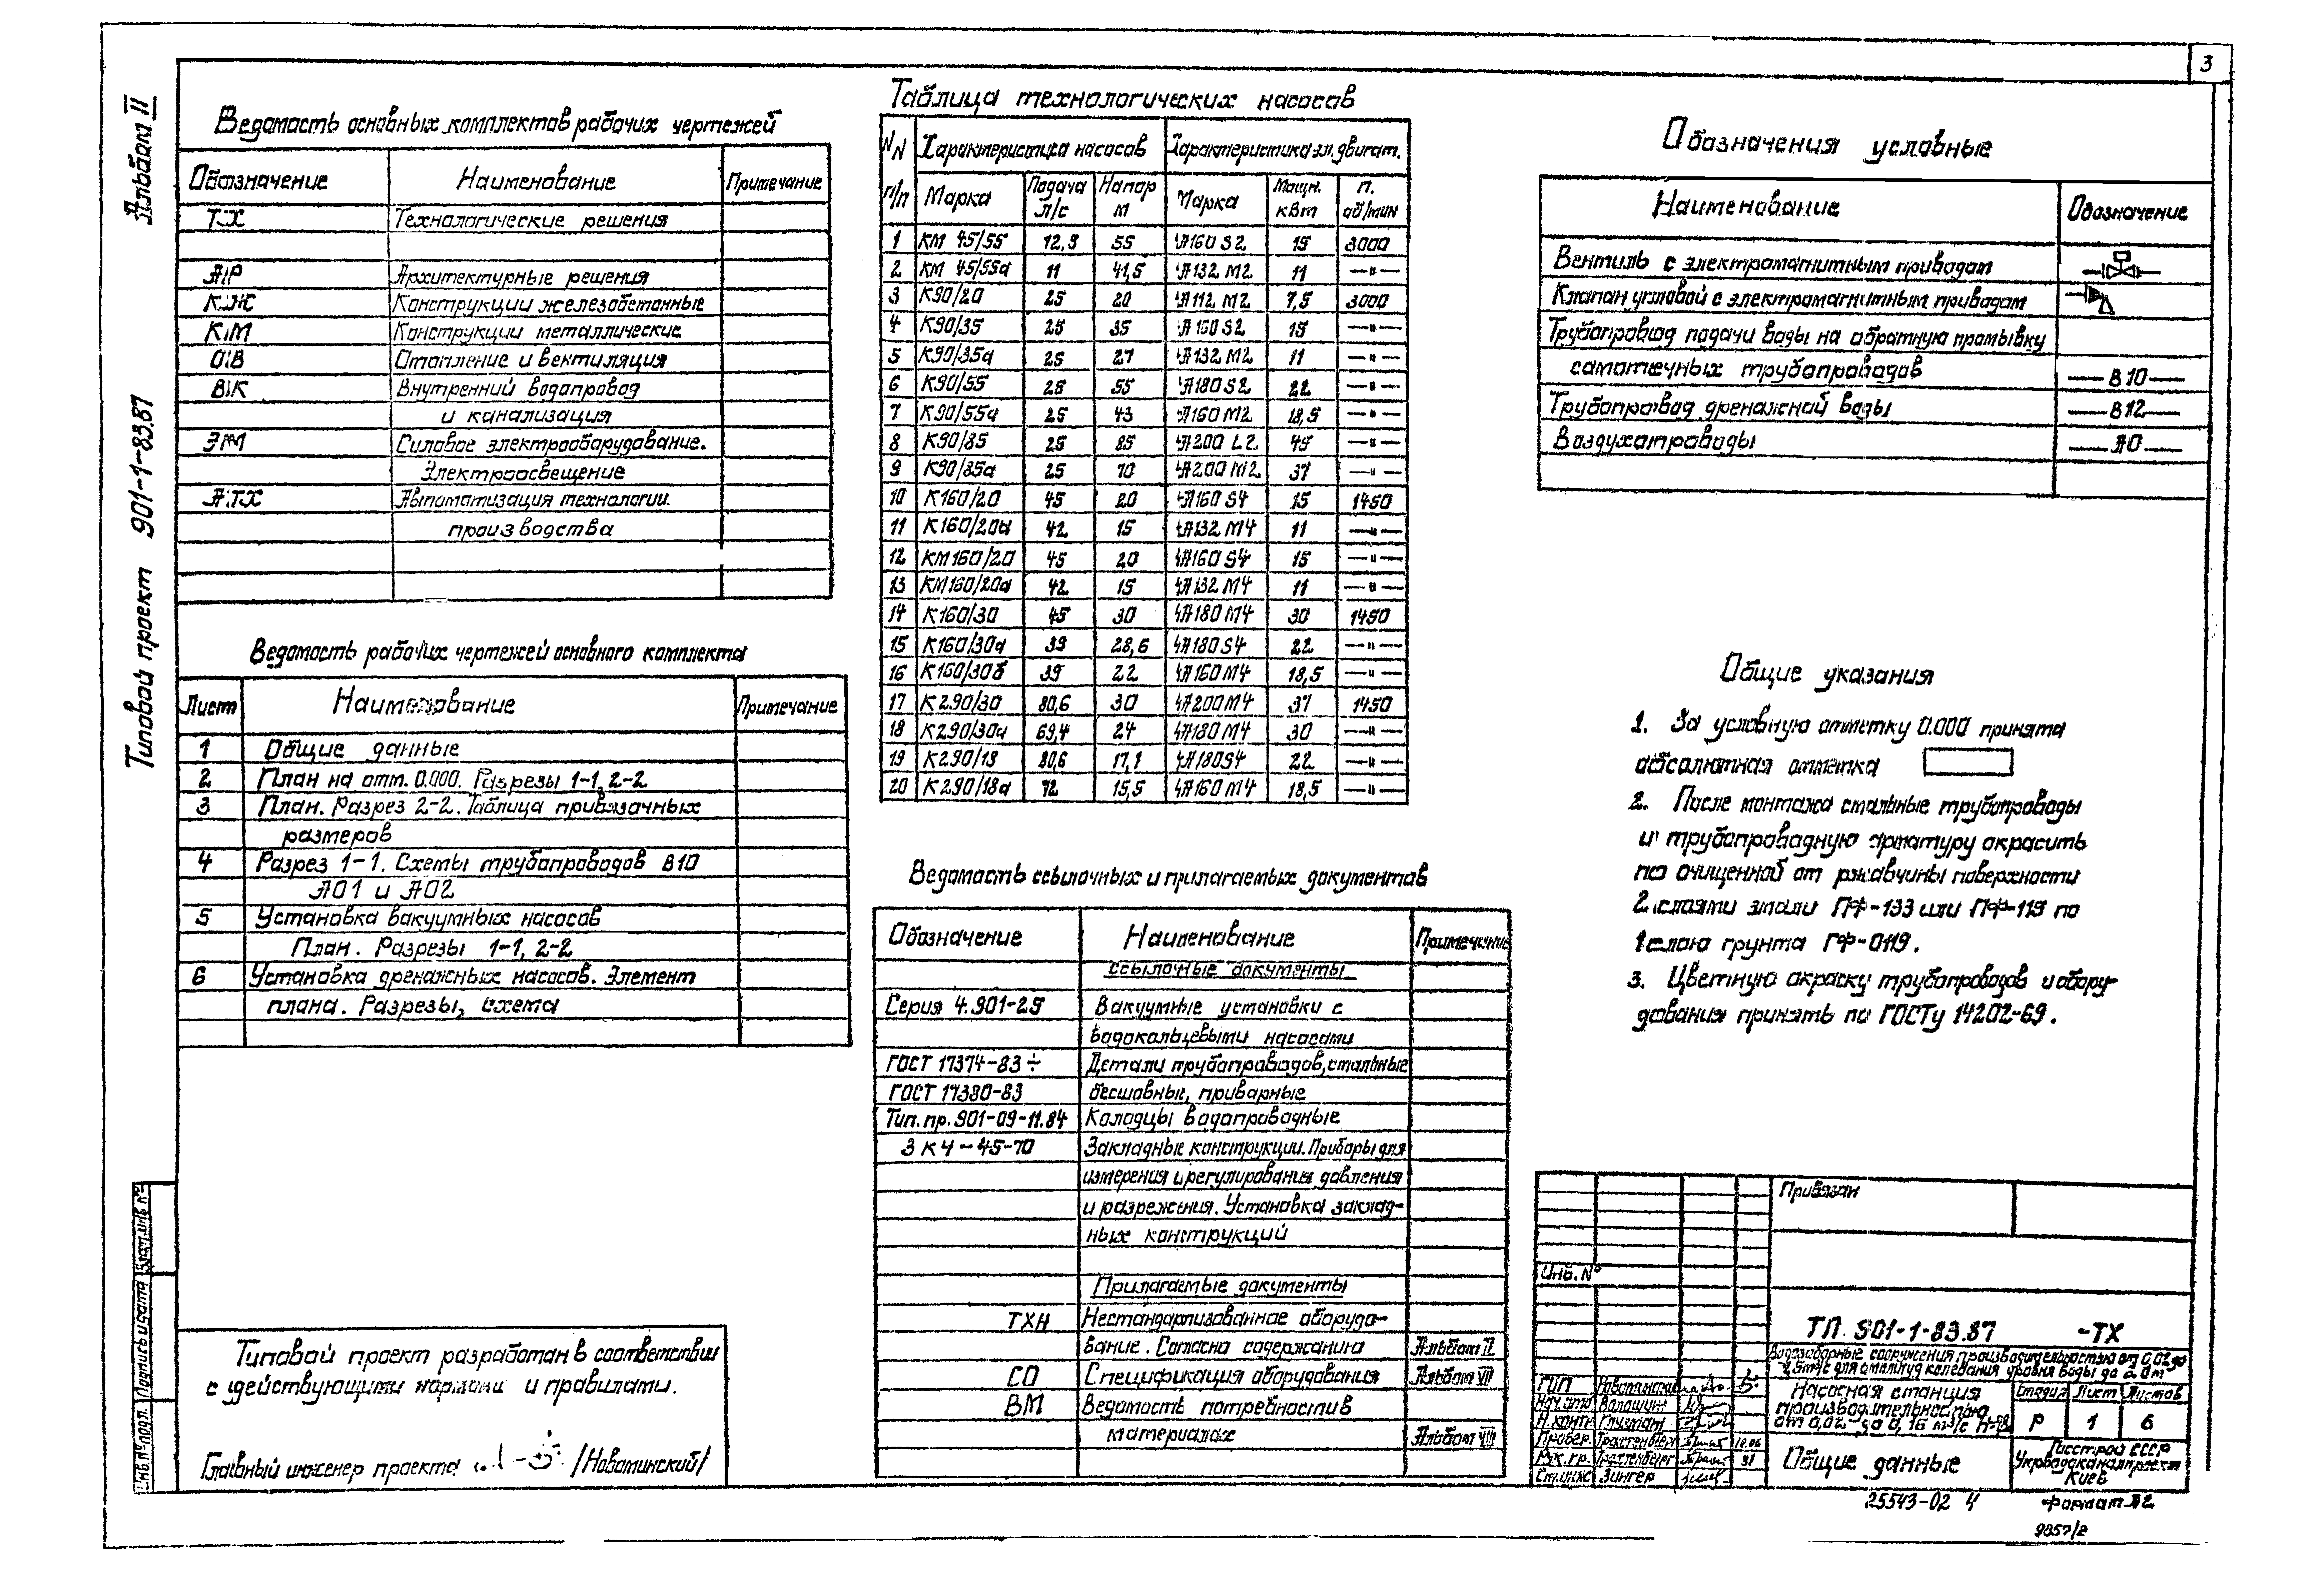 3
Альбом II
Типовой проект 901-1-83.87
Ведомость основных комплектов рабочих чертежей
Обозначение Наименование Примечание
ТХ Технологические решения
АР Архитектурные решения
КЖ Конструкции железобетонные
КМ Конструкции металлические
ОВ Отопление и вентиляция
ВК Внутренний водопровод
и канализация
ЭМ Силовое электрооборудование.
Электроосвещение
АТХ Автоматизация технологии.
производства
Ведомость рабочих чертежей основного комплекта
Лист Наименование Примечание
1 Общие данные
2 План на отм. 0.000. Разрезы 1-1, 2-2
3 План. Разрез 2-2. Таблица привязочных
размеров
4 Разрез 1-1. Схемы трубопроводов В10
А01 и А02
5 Установка вакуумных насосов
План. Разрезы 1-1, 2-2
6 Установка дренажных насосов. Элемент
плана. Разрезы, схема
Типовой проект разработан в соответствии
с действующими нормами и правилами.
Главный инженер проекта /Новоминский/
Таблица технологических насосов
NN п/п Характеристика насосов Характеристика эл. двигат.
Марка Подача л/с Напор м Марка Мощн. кВт п. об/мин
1 КМ 45/55 12,5 55 4А160 S2 15 3000
2 КМ 45/55а 11 41,5 4А132 М2 11 —"—
3 К90/20 25 20 4А112 М2 7,5 3000
4 К90/35 25 35 4А160 S2 15 —"—
5 К90/35а 25 27 4А132 М2 11 —"—
6 К90/55 25 55 4А180 S2 22 —"—
7 К90/55а 25 43 4А160 М2 18,5 —"—
8 К90/85 25 85 4А200 L2 45 —"—
9 К90/85а 25 70 4А200 М2 37 —"—
10 К160/20 45 20 4А160 S4 15 1450
11 К160/20а 42 15 4А132 М4 11 —"—
12 КМ160/20 45 20 4А160 S4 15 —"—
13 КМ160/20а 42 15 4А132 М4 11 —"—
14 К160/30 45 30 4А180 М4 30 1450
15 К160/30а 39 28,6 4А180 S4 22 —"—
16 К160/30б 39 22 4А160 М4 18,5 —"—
17 К290/30 80,6 30 4А200 М4 37 1450
18 К290/30а 69,4 24 4А180 М4 30 —"—
19 К290/18 80,6 17,1 4А180S4 22 —"—
20 К290/18а 72 15,5 4А160 М4 18,5 —"—
Ведомость ссылочных и прилагаемых документов
Обозначение Наименование Примечание
Ссылочные документы
Серия 4.901-25 Вакуумные установки с
водокольцевыми насосами
ГОСТ 17374-83 ÷ Детали трубопроводов, стальные
ГОСТ 17380-83 бесшовные, приварные
Тип. пр. 901-09-11.84 Колодцы водопроводные
3К4-45-70 Закладные конструкции. Приборы для
измерения и регулирования давления
и разрежения. Установка заклад-
ных конструкций
Прилагаемые документы
ТХН Нестандартизованное оборудо-
вание. Согласно содержанию Альбом II
СО Спецификация оборудования Альбом VII
ВМ Ведомость потребности в
материалах Альбом VIII
Обозначения условные
Наименование Обозначение
Вентиль с электромагнитным приводом
Клапан угловой с электромагнитным приводом
Трубопровод подачи воды на обратную промывку
самотечных трубопроводов —В10—
Трубопровод дренажной воды —В12—
Воздухопроводы —А0—
Общие указания
1. За условную отметку 0.000 принята
абсолютная отметка
2. После монтажа стальные трубопроводы
и трубопроводную арматуру окрасить
по очищенной от ржавчины поверхности
2 слоями эмали ПФ-133 или ПФ-115 по
1 слою грунта ГФ-0119.
3. Цветную окраску трубопроводов и обору-
дования принять по ГОСТу 14202-69.
Привязан
Инв. №
ТП 901-1-83.87 -ТХ
Водозаборные сооружения производительностью от 0,02 до
для амплитуд колебания уровня воды до
Насосная станция
производительностью
от 0,02 до 0,16 м³/с
Стадия Лист Листов
Р 1 6
Общие данные
Госстрой СССР
Укрводоканалпроект
Киев
ГИП Новоминский
Нач. отд Волошин
Н. контр Глузман
Провер. Трахтенберг
Рук. гр. Трахтенберг
Ст. инж Зингер
Инв. № подл. Подпись и дата Взам. инв. №
25543-02 4 Формат А2
9857/2